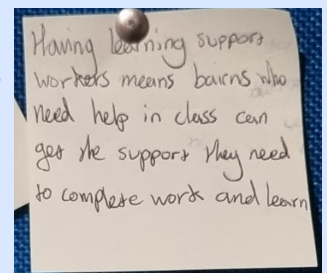 Having learning support
workers means bairns who
need help in class can
get the support they need
to complete work and learn